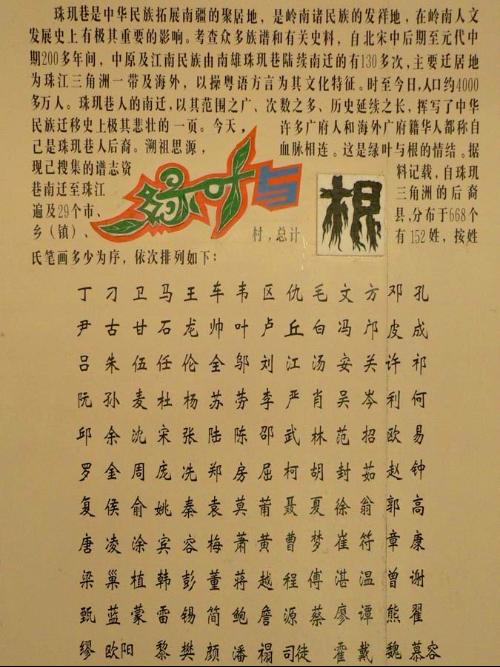 珠玑巷是中华民族拓展南疆的聚居地，是岭南诸民族的发祥地，在岭南人文
发展史上有极其重要的影响。考查众多族谱和有关史料，自北宋中后期至元代中
期200多年间，中原及江南民族由南雄珠玑巷陆续南迁的有130多次，主要迁居地
为珠江三角洲一带及海外，以操粤语方言为其文化特征。时至今日，人口约4000
多万人。珠玑巷人的南迁，以其范围之广、次数之多、历史延续之长，挥写了中华
民族迁移史上极其悲壮的一页。今天，许多广府人和海外广府籍华人都称自
己是珠玑巷人后裔。溯祖思源，血脉相连。这是绿叶与根的情结。据
现己搜集的谱志资料记载，自珠玑
巷南迁至珠江三角洲的后裔
遍及29个市、县，分布于668个
乡（镇）、村，总计有152姓，按姓
绿叶与根
氏笔画多少为序，依次排列如下：
丁 刁 卫 马 王 车 韦 区 仇 毛 文 方 邓 孔
尹 古 甘 石 龙 帅 叶 卢 丘 白 冯 邝 皮 成
吕 朱 伍 任 伦 全 邬 刘 江 汤 安 关 许 祁
阮 孙 麦 杜 杨 苏 劳 李 严 肖 吴 岑 利 何
邱 余 沈 宋 张 陆 陈 邵 武 林 范 招 欧 易
罗 金 周 庞 冼 郑 房 屈 柯 胡 封 茹 赵 钟
复 侯 俞 姚 秦 袁 莫 莆 聂 夏 徐 翁 郭 高
唐 凌 涂 宾 容 梅 萧 黄 曹 梦 崔 符 章 康
梁 巢 植 韩 彭 董 蒋 越 程 傅 湛 温 曾 谢
甄 蓝 蒙 雷 锡 简 鲍 詹 源 蔡 廖 谭 熊 翟
缪 欧阳 黎 樊 颜 潘 禤 司徒 霍 戴 魏 慕容